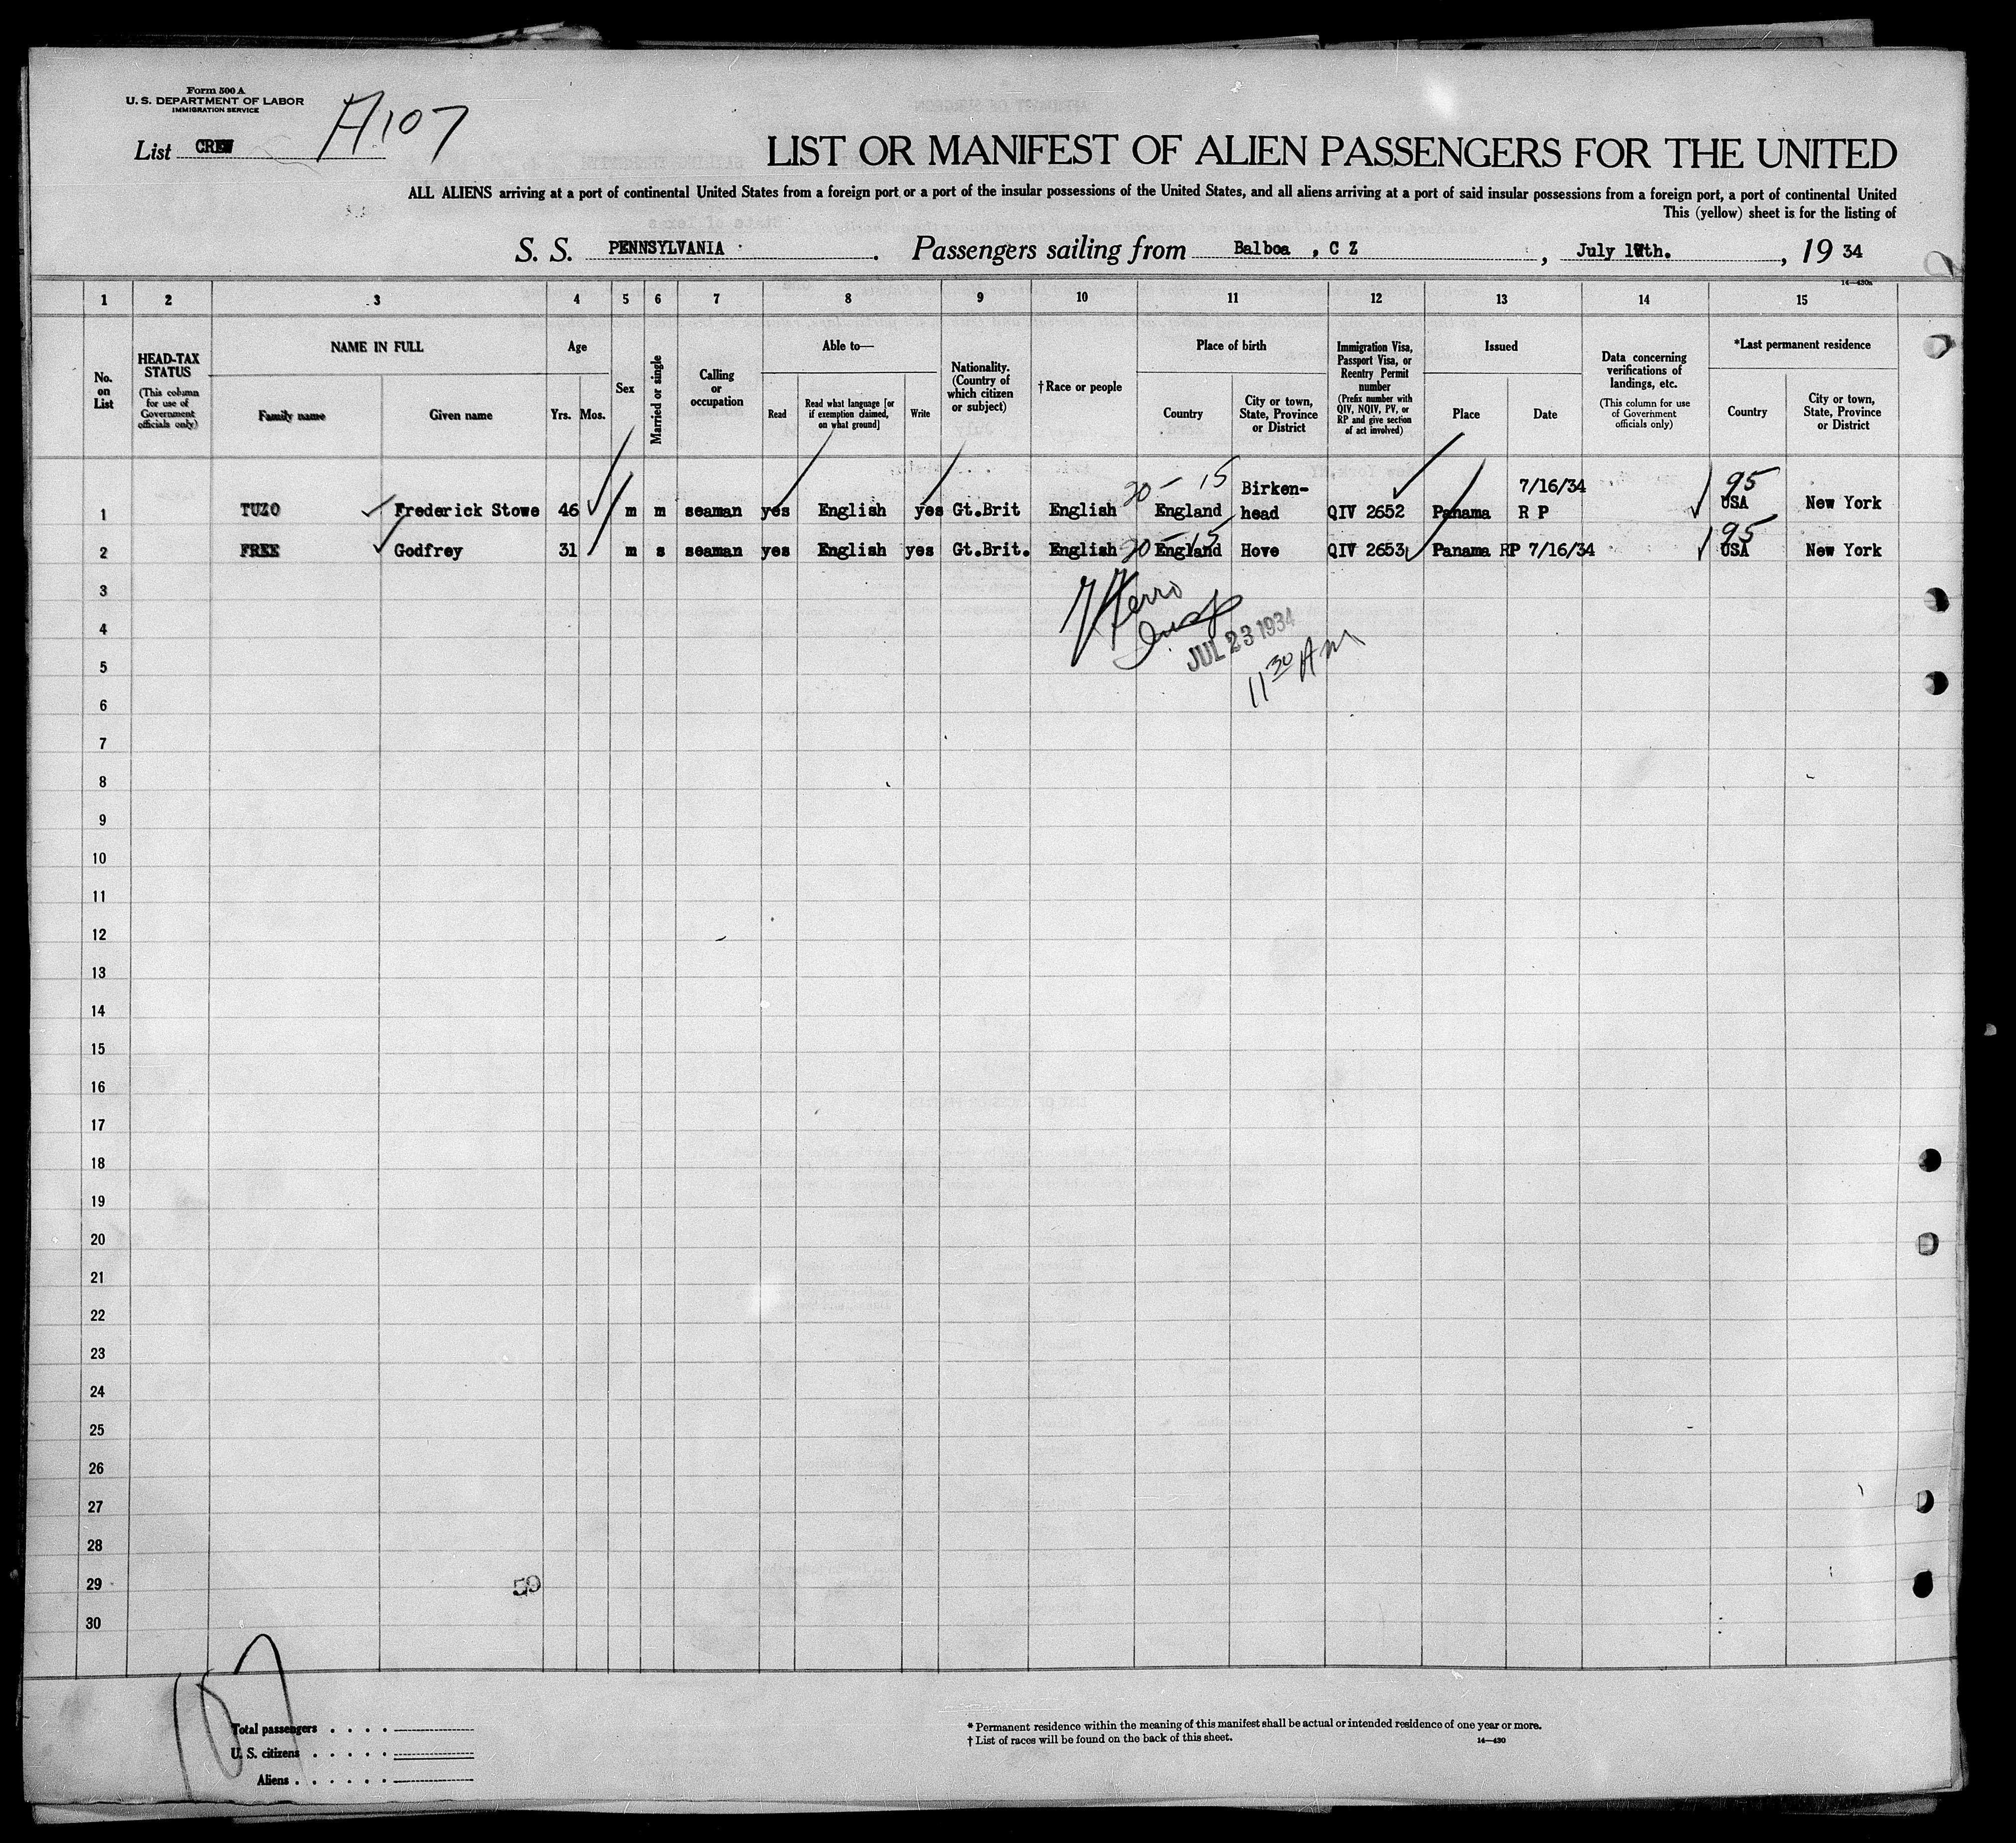 Form 500 A
U. S. DEPARTMENT OF LABOR
IMMIGRATION SERVICE
List CREW A107
LIST OR MANIFEST OF ALIEN PASSENGERS FOR THE UNITED
ALL ALIENS arriving at a port of continental United States from a foreign port or a port of the insular possessions of the United States, and all aliens arriving at a port of said insular possessions from a foreign port, a port of continental United
This (yellow) sheet is for the listing of
S. S. PENNSYLVANIA . Passengers sailing from Balboa , C Z , July th. , 19 34
14—430a
1 2 3 4 5 6 7 8 9 10 11 12 13 14 15
No. on List
HEAD-TAX STATUS
(This column for use of Government officials only)
NAME IN FULL
Family name Given name
Age
Yrs. Mos.
Sex
Married or single
Calling or occupation
Able to—
Read
Read what language [or if exemption claimed, on what ground]
Write
Nationality. (Country of which citizen or subject)
†Race or people
Place of birth
Country
City or town, State, Province or District
Immigration Visa, Passport Visa, or Reentry Permit number
(Prefix number with QIV, NQIV, PV, or RP and give section of act involved)
Issued
Place Date
Data concerning verifications of landings, etc.
(This column for use of Government officials only)
*Last permanent residence
Country
City or town, State, Province or District
20— 15 Birken- 7/16/34 95
1 TUZO Frederick Stowe 46 m m seaman yes English yes Gt.Brit English England head QIV 2652 Panama R P USA New York
20—15 95
2 FREE Godfrey 31 m s seaman yes English yes Gt.Brit. English England Hove QIV 2653 Panama RP 7/16/34 USA New York
3
4
JUL 23 1934
5
11 30 AM
6
7
8
9
10
11
12
13
14
15
16
17
18
19
20
21
22
23
24
25
26
27
28
29 59
30
107
Total passengers . . . .
U. S. citizens . . . . .
Aliens . . . . . .
* Permanent residence within the meaning of this manifest shall be actual or intended residence of one year or more.
† List of races will be found on the back of this sheet. 14—430